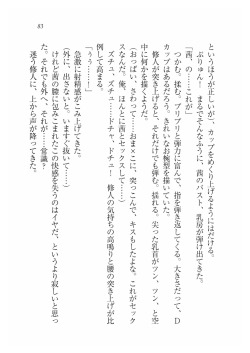 83
というほうが正しいが)、カップをめくり上げるようにはだける。
ぷりゅん! まるでそんなふうに、茜のバスト、乳房が弾け出てきた。
「茜、の……これが」
つかむ。揉む。プリプリと弾力に富んで、指を弾き返してくる。大きさだって、D
カップはあるだろう。きれいなお椀型を描いていた。
修人が突き上げると、それだけで弾む。揺れる。尖った乳首がツン、ツン、と空
中に何かを描くようだ。
(おっぱい、さわってる……おま×こに、突っこんで、キスもしたよな。これがセック
スなんだ。俺、ほんとに茜とセックスして……)
ズチュ、ズチュ……ドチャ、ドチュ! 修人の気持ちの高鳴りと腰の突き上げが比
例して高まる。
「うぅ……!」
急激に射精感がこみ上げてきた。
(外に、出さないと。いますぐ抜いて……)
けれど茜の膣に包みこまれたこの快感を失うのはイヤだ、というより寂しいと思っ
た。それでも外へ、それが……常識?
迷う修人に、上から声が降ってきた。